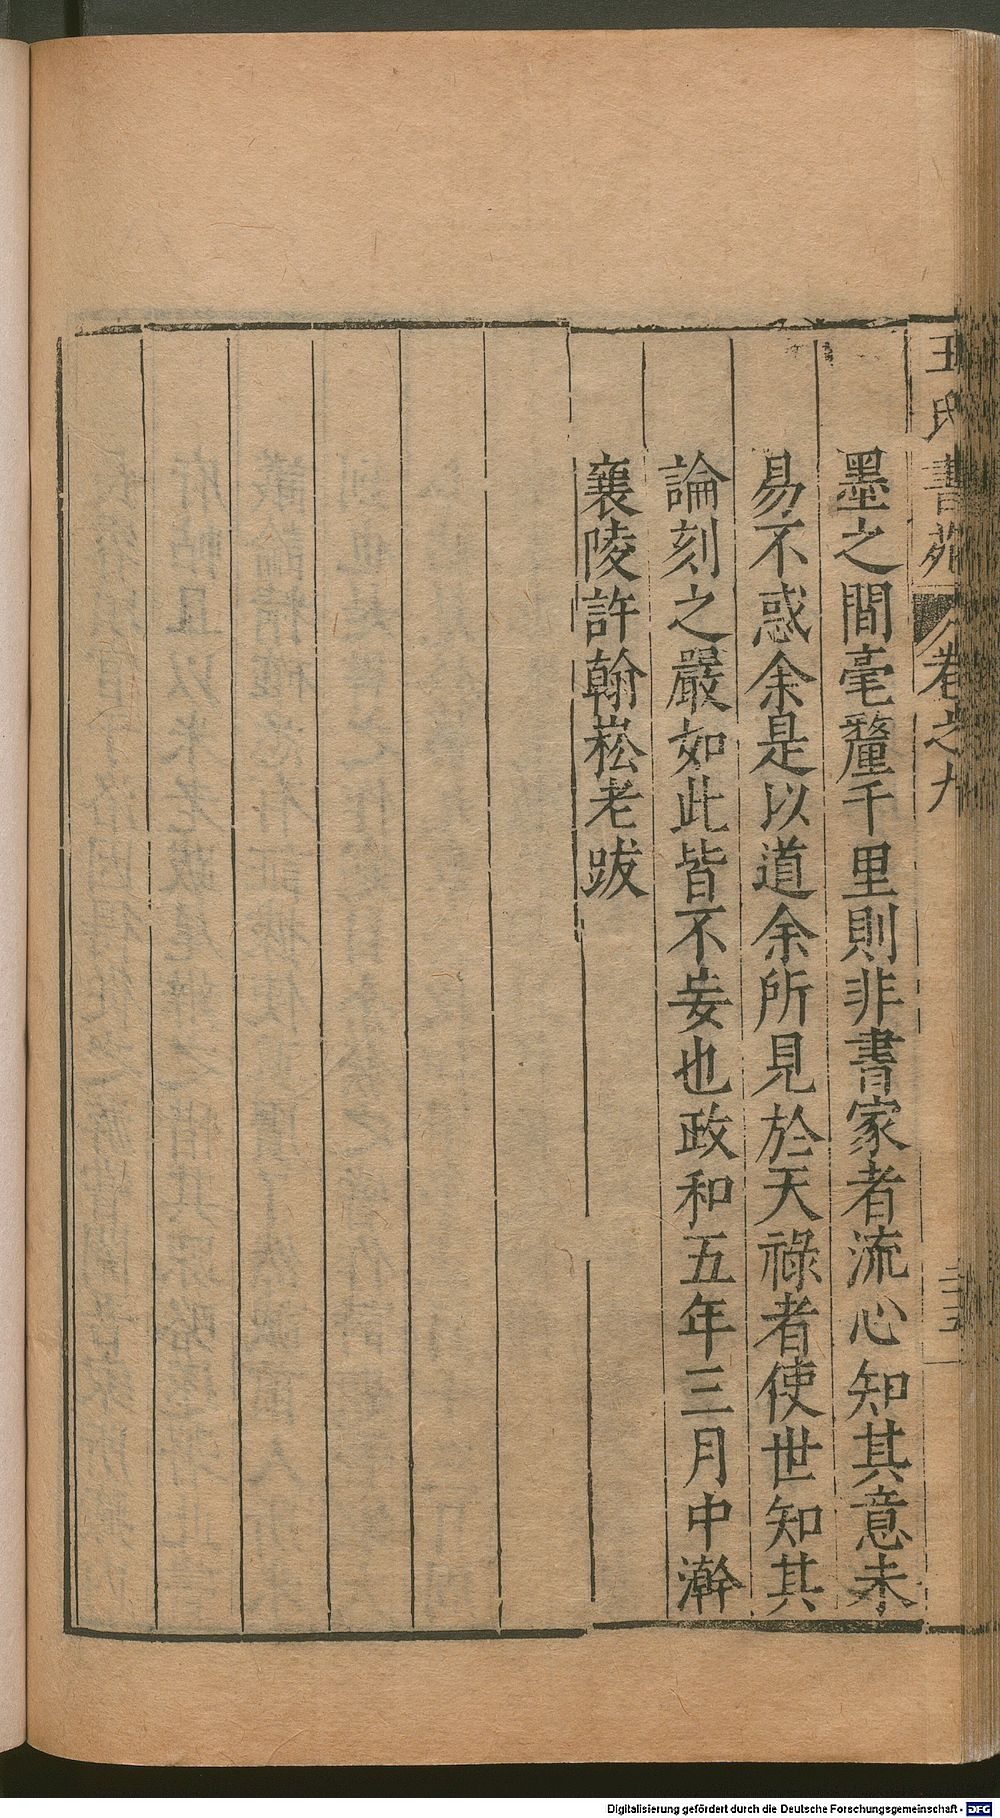 王氏書苑 卷之九 二五
墨之間毫釐千里則非書家者流心知其意未
易不惑余是以道余所見於天祿者使世知其
論刻之嚴如此皆不妄也政和五年三月中澣
襄陵許翰崧老跋
Digitalisierung gefördert durch die Deutsche Forschungsgemeinschaft - DFG